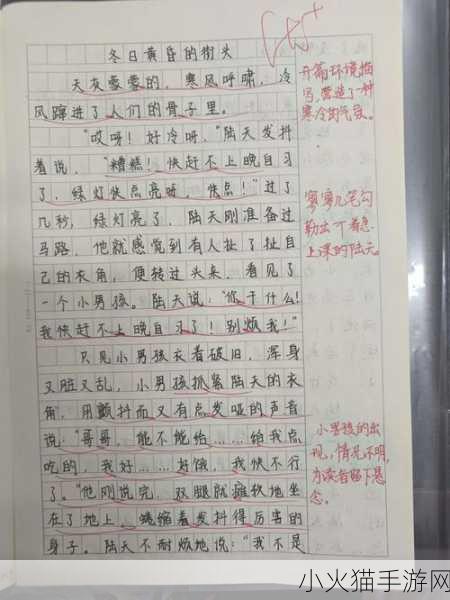 冬日黄昏的街头
天灰蒙蒙的，寒风呼啸，冷
风蹿进了人们的骨子里。
“哎呀！好冷呀，”陆天发抖
着说，“糟糕！快赶不上晚自习
了，绿灯快点亮呀，快点！”过了
几秒，绿灯亮了，陆天刚准备过
马路，他就感觉到有人扯了扯自
己的衣角，便转过头来，看见了
一个小男孩。陆天说：“你干什么！
我快赶不上晚自习了！别烦我！”
只见小男孩衣着破旧，浑身
又脏又乱，小男孩抓紧陆天的衣
角，用颤抖而又有点发哑的声音
说：“哥哥，能不能给……给我点
吃的，我好……好饿，我快不行
了。”他刚说完，双腿就瘫软地坐
在了地上，蜷缩着发抖得厉害的
身子。陆天不耐烦地说：“我不是
开篇环境描
写，营造了一种
寒冷的气氛。
寥寥几笔勾
勒出一个着急
上课的陆天。
小男孩的出
现，情况不明，
为读者留下悬
念。
小火猫手游网